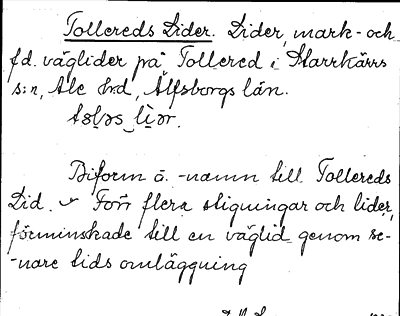 Tollereds Lider. Lider, mark- och
f.d. väglider på Tollered i Starrkärrs
s:n, Ale hrd, Älfsborgs län.
Biform o. -namn till Tollereds
Lid. Förr flera stigningar och lider,
förminskade till en väglid genom se-
-nare tids omläggning